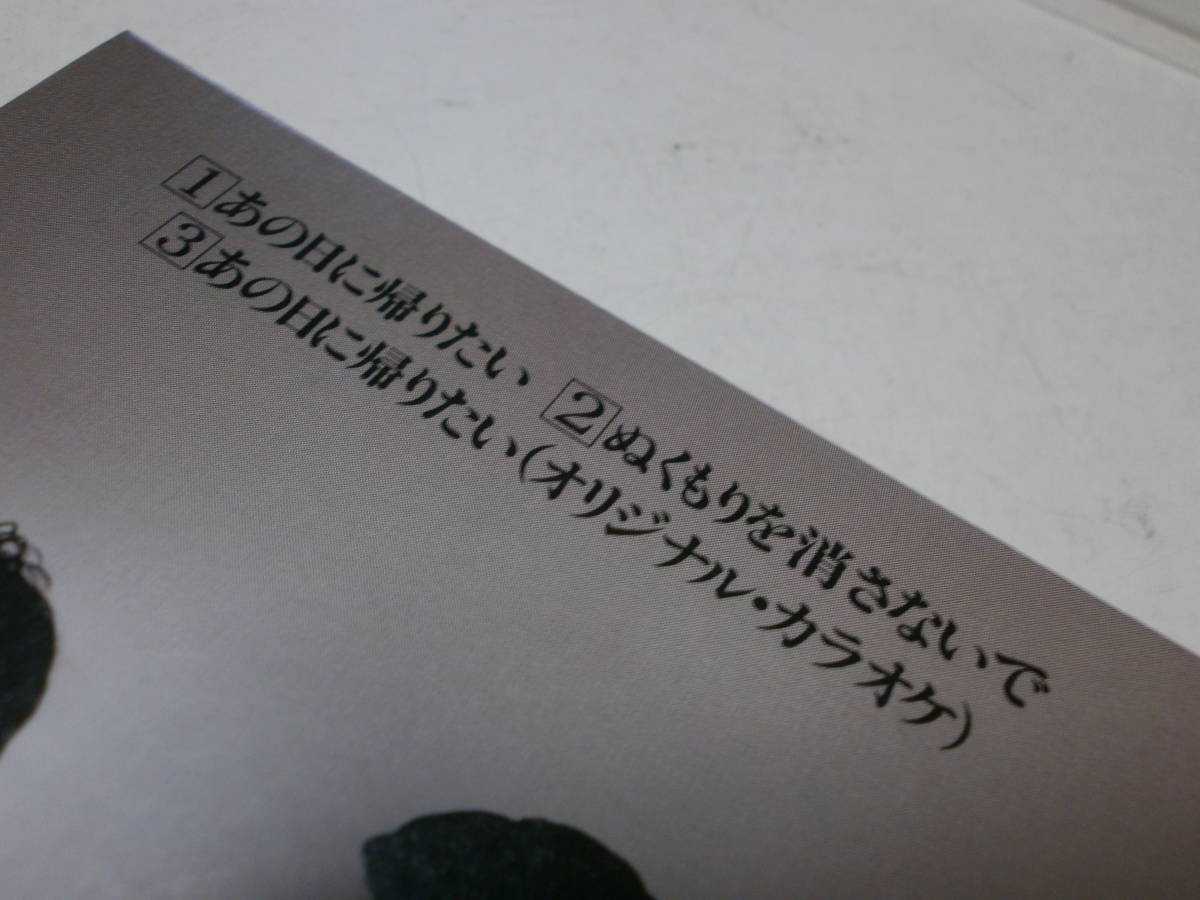 1あの日に帰りたい 2ぬくもりを消さないで
3あの日に帰りたい(オリジナル・カラオケ)